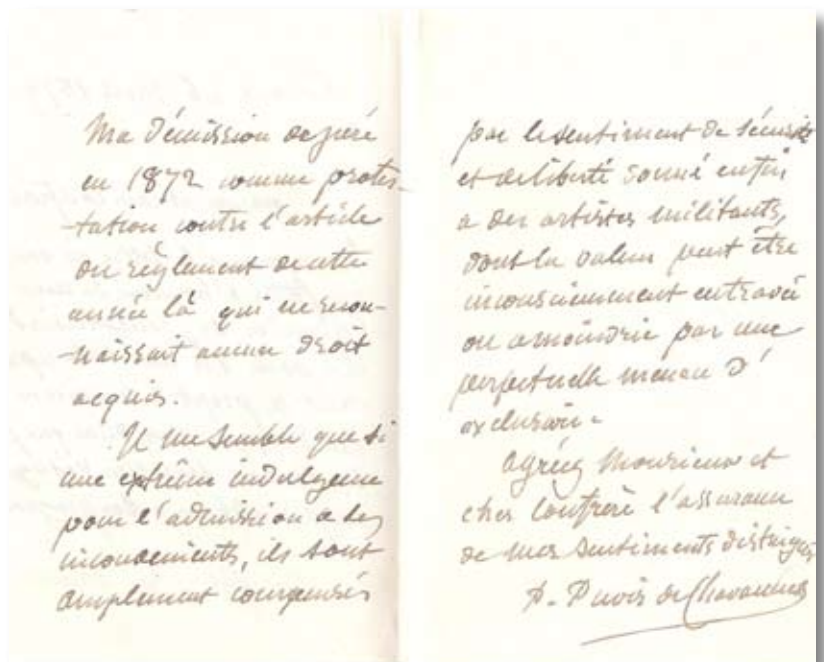 Ma démission de juré
en 1872 comme protes-
-tation contre l'article
du règlement de cette
année là qui ne recon-
-naissait aucun droit
acquis.
Il me semble que si
une extrême indulgence
pour l'admission a ses
inconvenients, ils sont
amplement compensés
par le sentiment de sécurité
et de liberté donné enfin
a des artistes militants,
dont la valeur peut être
inconsciemment entravée
ou amoindrie par une
perpetuelle menace d'
exclusion.
Agréez Monsieur et
cher Confrère l'assurance
de mes sentiments distingués
P. Puvis de Chavannes